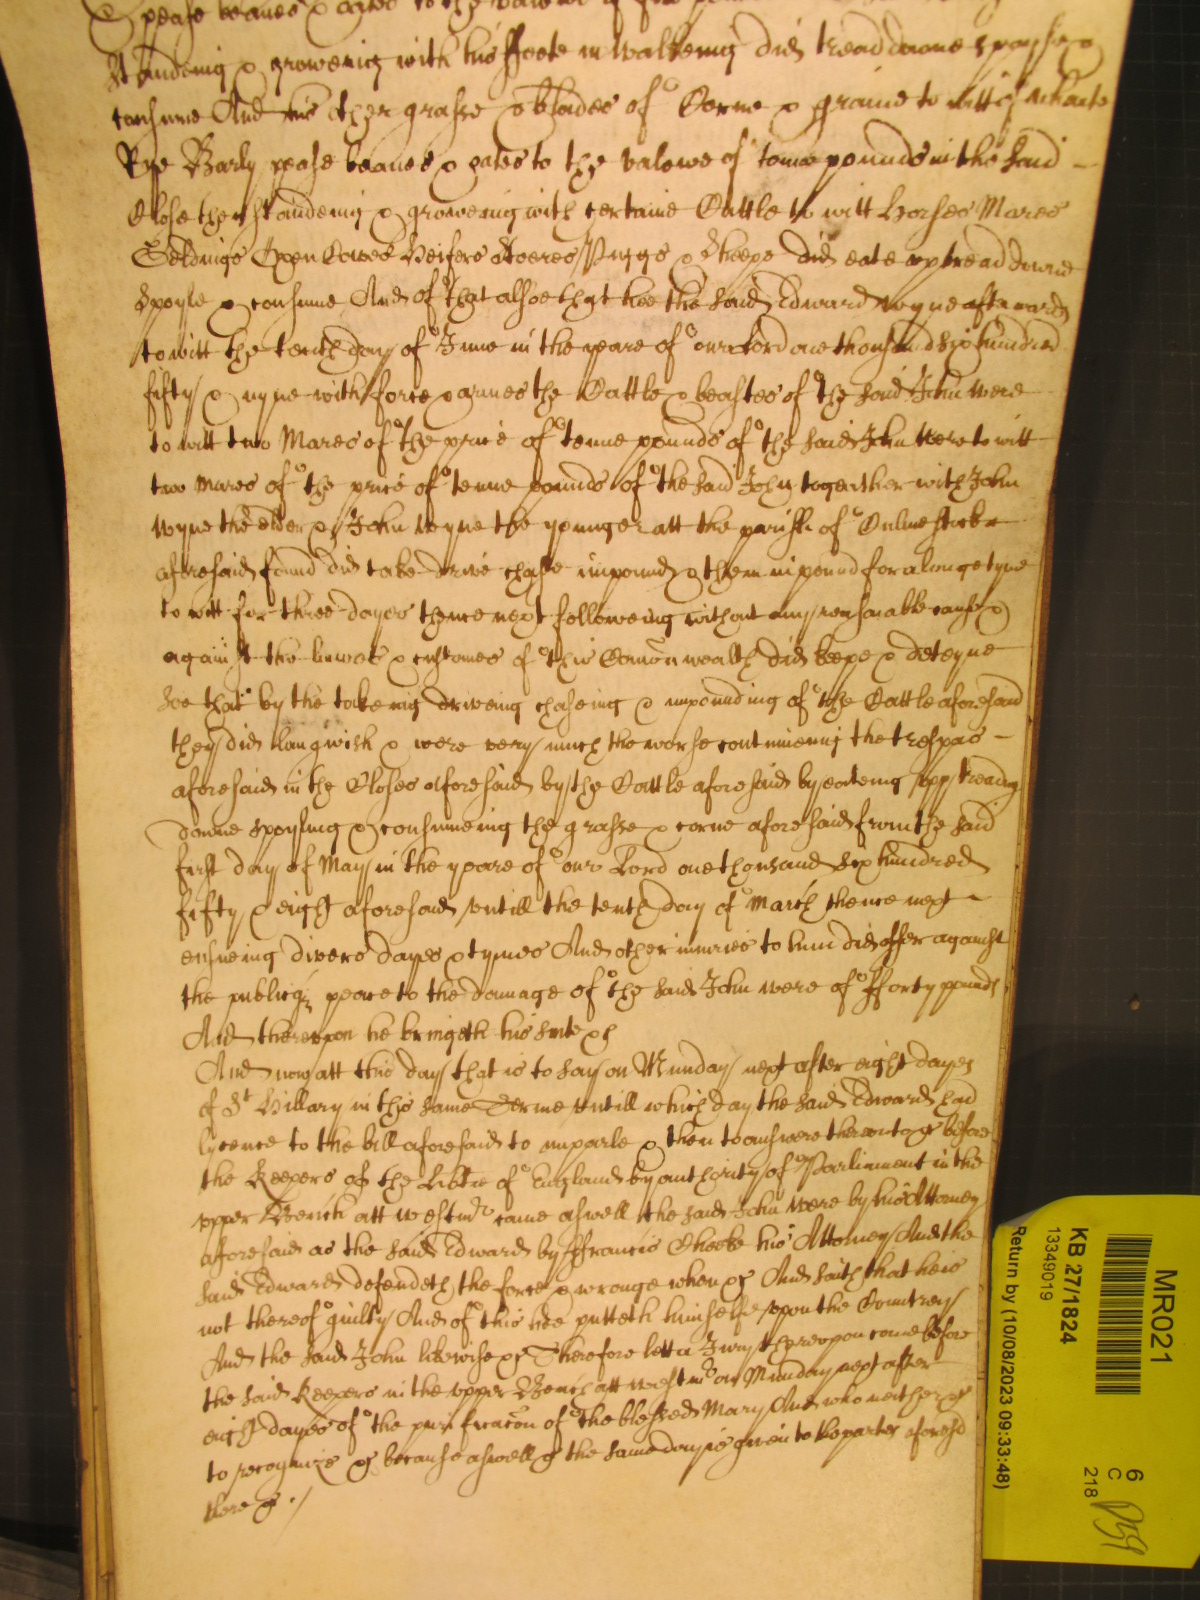 pease beanes & oates to the valewe of
Standeing & groweing with his ffeete in walkeing did tread downe spoyle &
consume And the other grasse & blades of Corne & graine to witt
Rye Barly pease beanes & oates to the valewe of tenne pounds in the said
Close then standeing & groweing with certaine Cattle to witt Horses Mares
Geldings Oxen Cowes Heifers Steeres Piggs & Sheepe did eate upp tread downe
Spoyle & consume And of that alsoe that hee the said Edward Wyne afterwards
to witt the tenth day of June in the yeare of our Lord one thousand six hundred
fifty & nyne with force & armes the Cattle & beastes of the said John Were
to witt two Mares of the price of tenne pounds of the said John Were to witt
two mares of the price of tenne pounds of the said John togeather with John
Wyne the elder & John Wyne the younger att the parish of
aforesaid found did take drive chase impound & them in pound for a longe tyme
to witt for three dayes thence next followeing without any reasonable cause &
against the lawes & customes of this Comon wealth did keepe & deteyne
Soe that by the takeing driveing chaseing & impounding of the Cattle aforesaid
they did langwish & were very much the worse continueing the trespas
aforesaid in the Closes aforesaid by the Cattle aforesaid by eateing upp treading
downe spoyling & consumeing the grasse & corne aforesaid from the said
first day of May in the yeare of our Lord one thousand six hundred
fifty & eight aforesaid untill the tenth day of March thence next
ensueing divers dayes & tymes And other injuries to him did offer against
the publiq peace to the damage of the said John Were of fforty pounds
And thereupon he bringeth his suite &c
And now att this day that is to say on Munday next after eight dayes
of St Hillary in this same Terme untill which day the said Edward had
lycence to the bill aforesaid to imparle & then to answere thereunto &c before
the Keepers of the Libtie of England by authority of Parliament in the
upper Bench att Westmr came aswell the said John Were by his Attorney
aforesaid as the said Edward by ffrancis Cheeke his Attorney And the
said Edward defendeth the force & wronge when &c And saith that he is
not thereof guilty And of this hee putteth himselfe upon the Countrey
And the said John likewise &c Therefore lett a Jury thereupon come before
the said Keepers in the upper Bench att Westmr on Munday next after
eight dayes of the purificacon of the blessed Mary And who neither &c
to recognize &c because aswell &c the same day is given to the parties aforesd
there &c
MR021
KB 27/1824
13349019
Return by (10/08/2023 09:33:48)
6
C
218